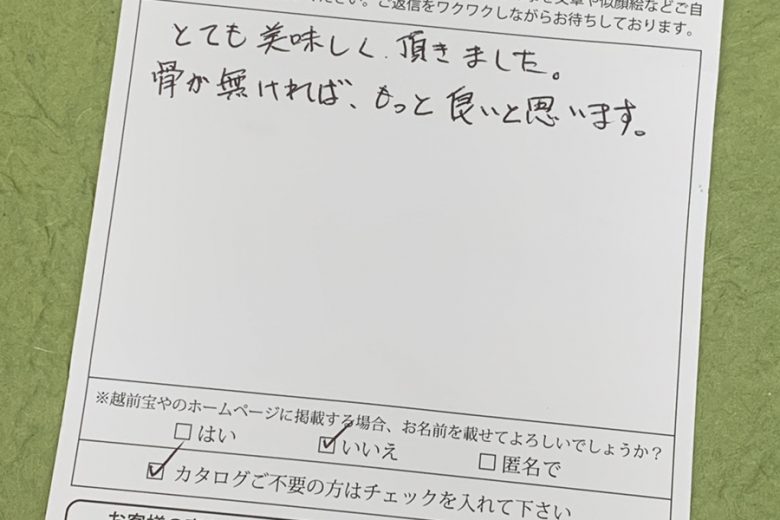 文章や似顔絵などご自
ださい。ご返信をワクワクしながらお待ちしております。
とても美味しく頂きました。
骨が無ければ、もっと良いと思います。
※越前宝やのホームページに掲載する場合、お名前を載せてよろしいでしょうか？
□はい ☑いいえ □匿名で
☑カタログご不要の方はチェックを入れて下さい
お客様の